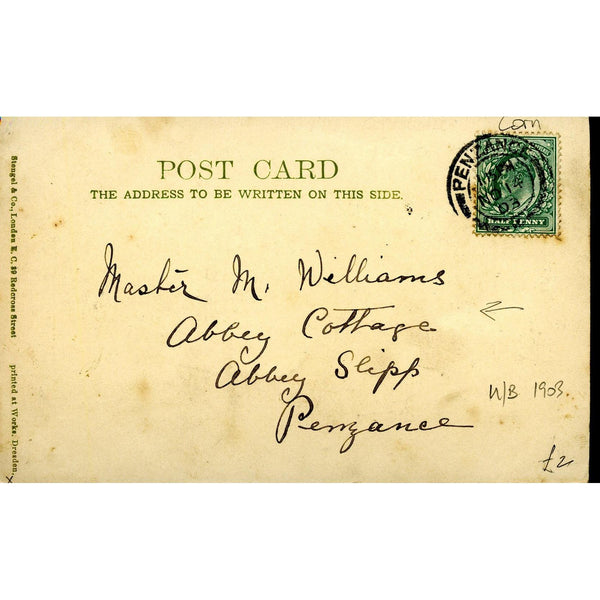 Corn
POST CARD
THE ADDRESS TO BE WRITTEN ON THIS SIDE.
PENZANCE
03
HALFPENNY
Master M. Williams
Abbey Cottage
Abbey Slipp
Penzance
U/B 1903.
£2
Stengel & Co., London E. C. 39 Redcross Street
printed at Works, Dresden.